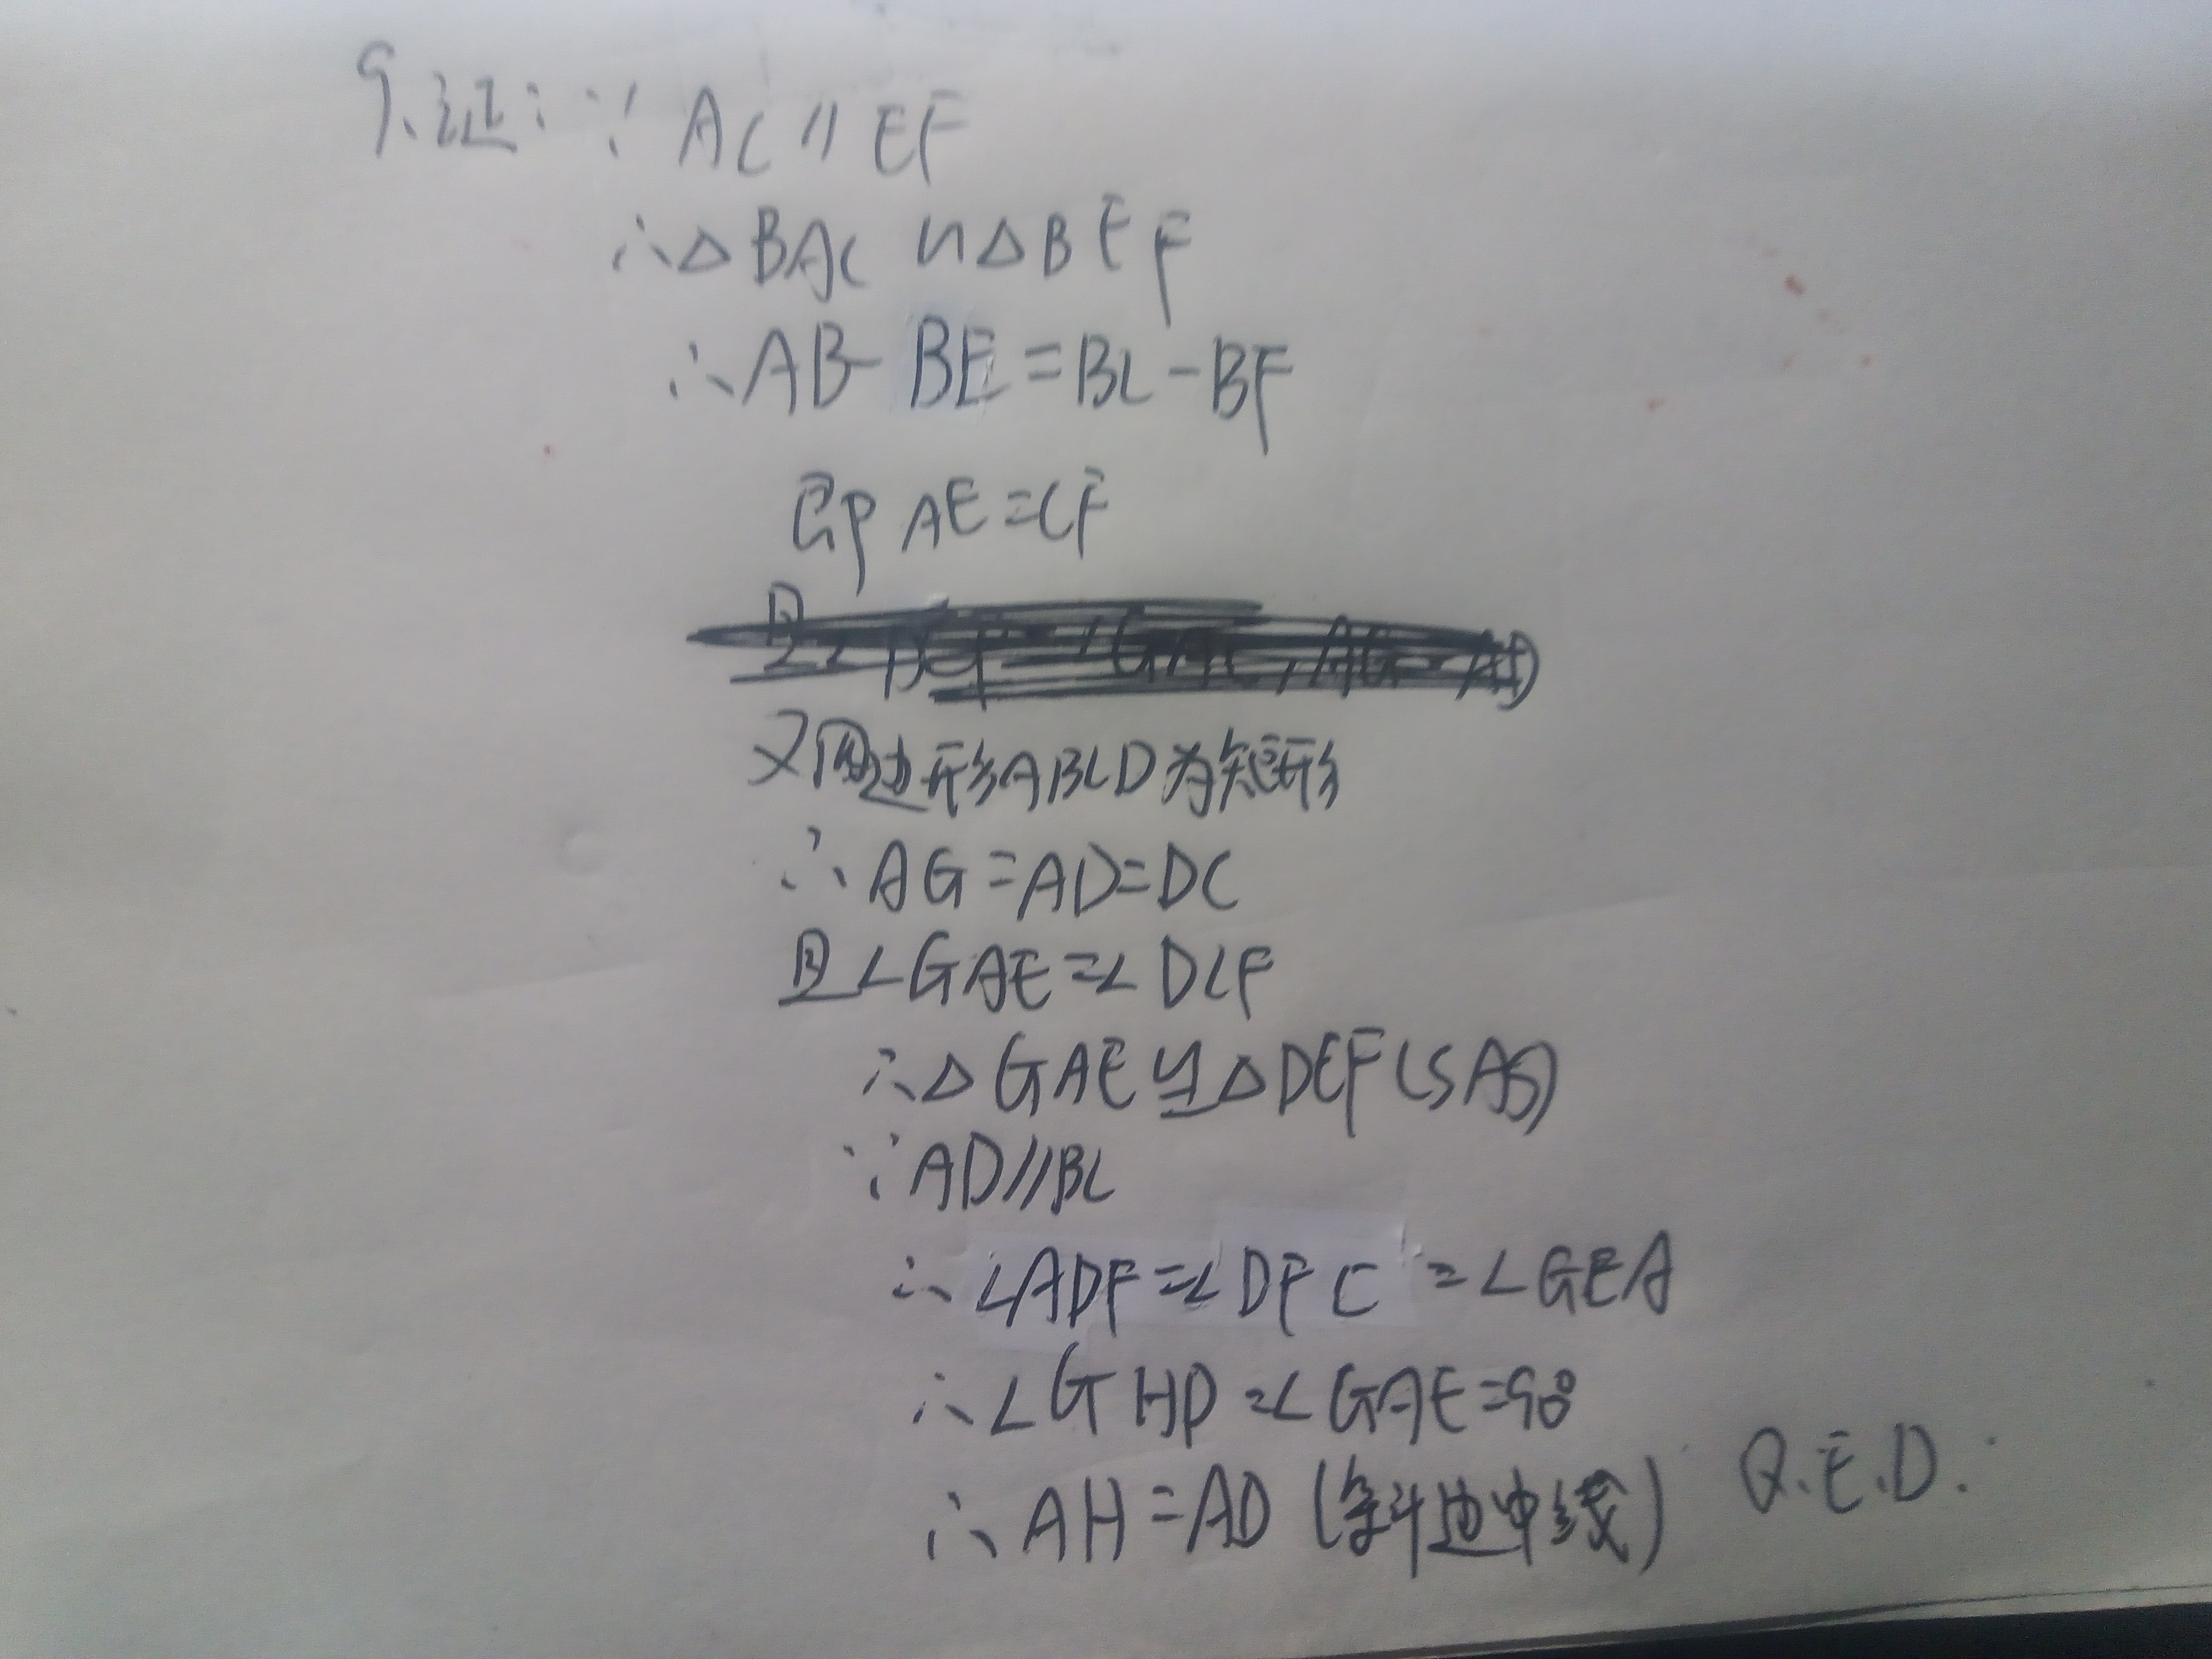 9.证:∵AC∥EF
∴△BAC∽△BEF
∴AB-BE=BC-BF
即AE=CF
又四边形ABCD为矩形
∴AG=AD=DC
且∠GAE=∠DCF
∴△GAE≌△DEF(SAS)
∵AD∥BC
∴∠ADF=∠DFC=∠GEA
∴∠GHD=∠GAE=90°
∴AH=AD(斜边中线) Q.E.D.